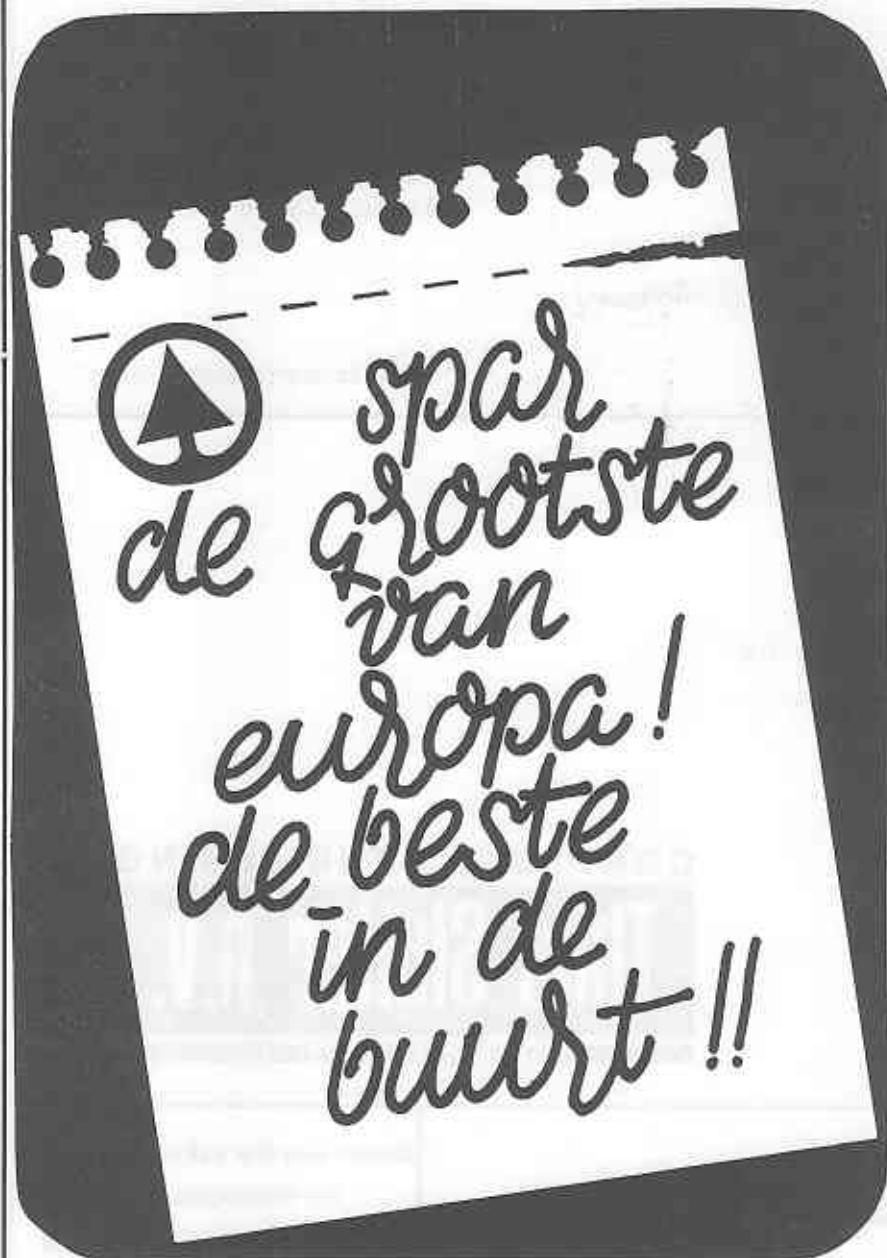 spar
de grootste
van
europa!
de beste
in de
buurt!!